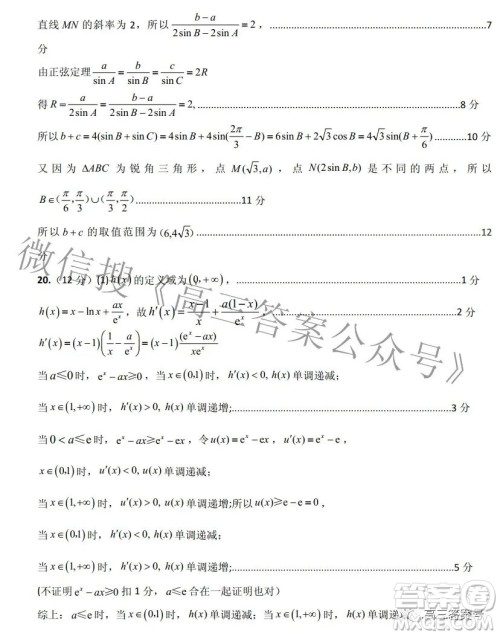 直线 MN 的斜率为 2，所以 (b−a)/(2sin B−2sin A)=2，………7
分
由正弦定理 a/sin A = b/sin B = c/sin C = 2R
得 R = a/(2sin A) = (b−a)/(2sin B−2sin A) = 2,………8 分
所以 b+c = 4(sin B+sin C) = 4sin B+4sin(2π/3−B) = 6sin B+2√3cos B = 4√3sin(B+π/6)………10 分
又因为 ΔABC 为锐角三角形，点 M(√3,a)，点 N(2sin B,b) 是不同的两点，所以
B∈(π/6,π/3)∪(π/3,π/2)………11 分
所以 b+c 的取值范围为 (6,4√3)………12
分
20.（12 分）(1) h(x) 的定义域为 (0,+∞)，………1 分
h(x)=x−ln x+ax/e^x，故 h′(x)=(x−1)/x+a(1−x)/e^x，………2 分
h′(x)=(x−1)(1/x−a/e^x)=(x−1)(e^x−ax)/(xe^x)
当 a≤0 时，e^x−ax≥0，当 x∈(0,1) 时，h′(x)<0, h(x) 单调递减；
当 x∈(1,+∞) 时，h′(x)>0, h(x) 单调递增;………3 分
当 0<a≤e 时，e^x−ax≥e^x−ex，令 u(x)=e^x−ex，u′(x)=e^x−e，
x∈(0,1) 时，u′(x)<0, u(x) 单调递减；
当 x∈(1,+∞) 时，u′(x)>0, u(x) 单调递增;所以 u(x)≥e−e=0，
当 x∈(0,1) 时，h′(x)<0, h(x) 单调递减；
当 x∈(1,+∞) 时，h′(x)>0, h(x) 单调递增;………5 分
(不证明 e^x−ax≥0 扣 1 分，a≤e 合在一起证明也对)
综上：a≤e 时，当 x∈(0,1) 时，h′(x)<0, h(x) 单调递减；
微信搜《高三答案公众号》